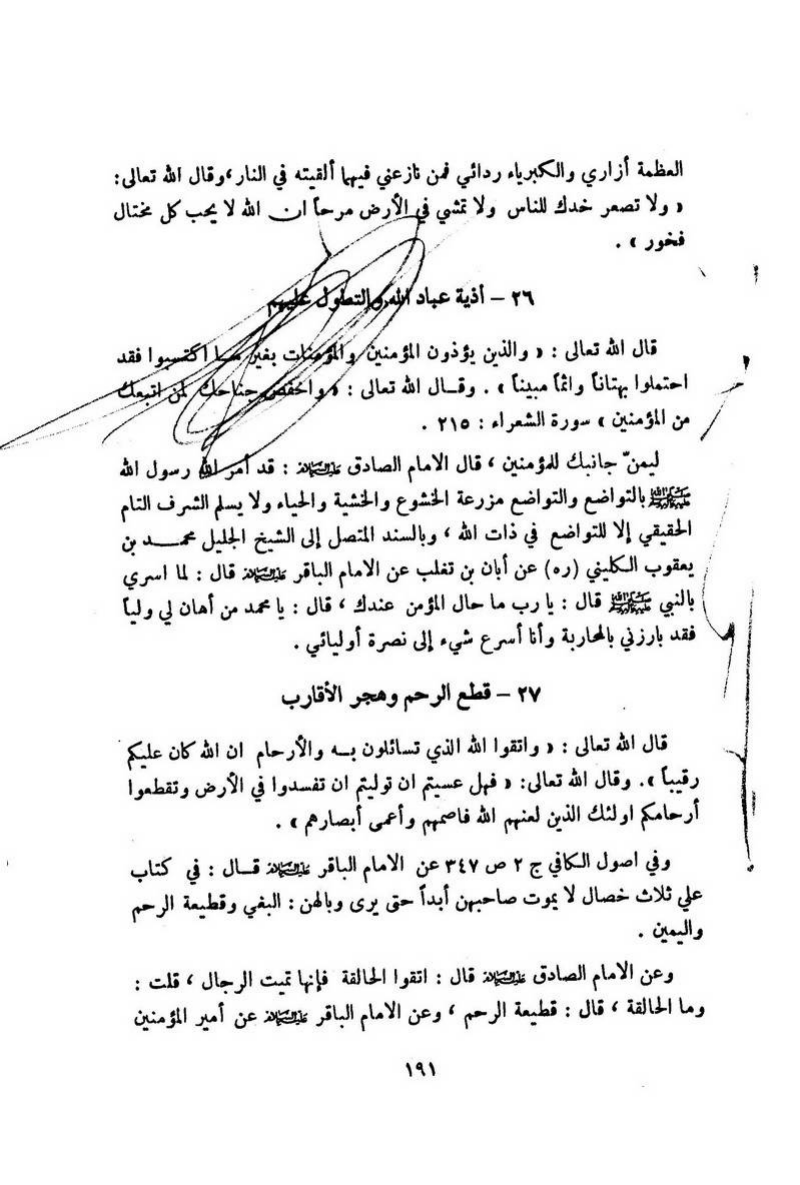 العظمة أزاري والكبرياء ردائي فمن نازعني فيهما ألقيته في النار، وقال الله تعالى:
« ولا تصعر خدك للناس ولا تمشي في الأرض مرحاً ان الله لا يحب كل مختال
فخور » .
٢٦ – أذية عباد الله والتطول عليهم
قال الله تعالى : « والذين يؤذون المؤمنين والمؤمنات بغير مـا اكتسبوا فقد
احتملوا بهتاناً واثماً مبيناً » . وقـال الله تعالى : « واخفض جناحك لمن اتبعك
من المؤمنين » سورة الشعراء : ٢١٥ .
ليمنّ جانبك للمؤمنين ، قال الامام الصادق عليه السلام : قد أمر الله رسول الله
صلى الله عليه وآله وسلم بالتواضع والتواضع مزرعة الخشوع والخشية والحياء ولا يسلم الشرف التام
الحقيقي إلا للتواضع في ذات الله ، وبالسند المتصل إلى الشيخ الجليل محمـد بن
يعقوب الكليني (ره) عن أبان بن تغلب عن الامام الباقر عليه السلام قال : لما اسري
بالنبي صلى الله عليه وآله وسلم قال : يا رب ما حال المؤمن عندك ، قال : يا محمد من أهان لي ولياً
فقد بارزني بالمحاربة وأنا أسرع شيء إلى نصرة أوليائي .
٢٧ – قطع الرحم وهجر الأقارب
قال الله تعالى : « واتقوا الله الذي تسائلون بـه والأرحام ان الله كان عليكم
رقيباً ». وقال الله تعالى: « فهل عسيتم ان توليتم ان تفسدوا في الأرض وتقطعوا
أرحامكم اولئك الذين لعنهم الله فاصمهم وأعمى أبصارهم » .
وفي اصول الكافي ج ٢ ص ٣٤٧ عن الامام الباقر عليه السلام قـال : في كتاب
علي ثلاث خصال لا يموت صاحبهن أبداً حتى يرى وبالهن : البغي وقطيعة الرحم
واليمين .
وعن الامام الصادق عليه السلام قال : اتقوا الحالقة فإنها تميت الرجال ، قلت :
وما الحالقة ، قال : قطيعة الرحم ، وعن الامام الباقر عليه السلام عن أمير المؤمنين
١٩١